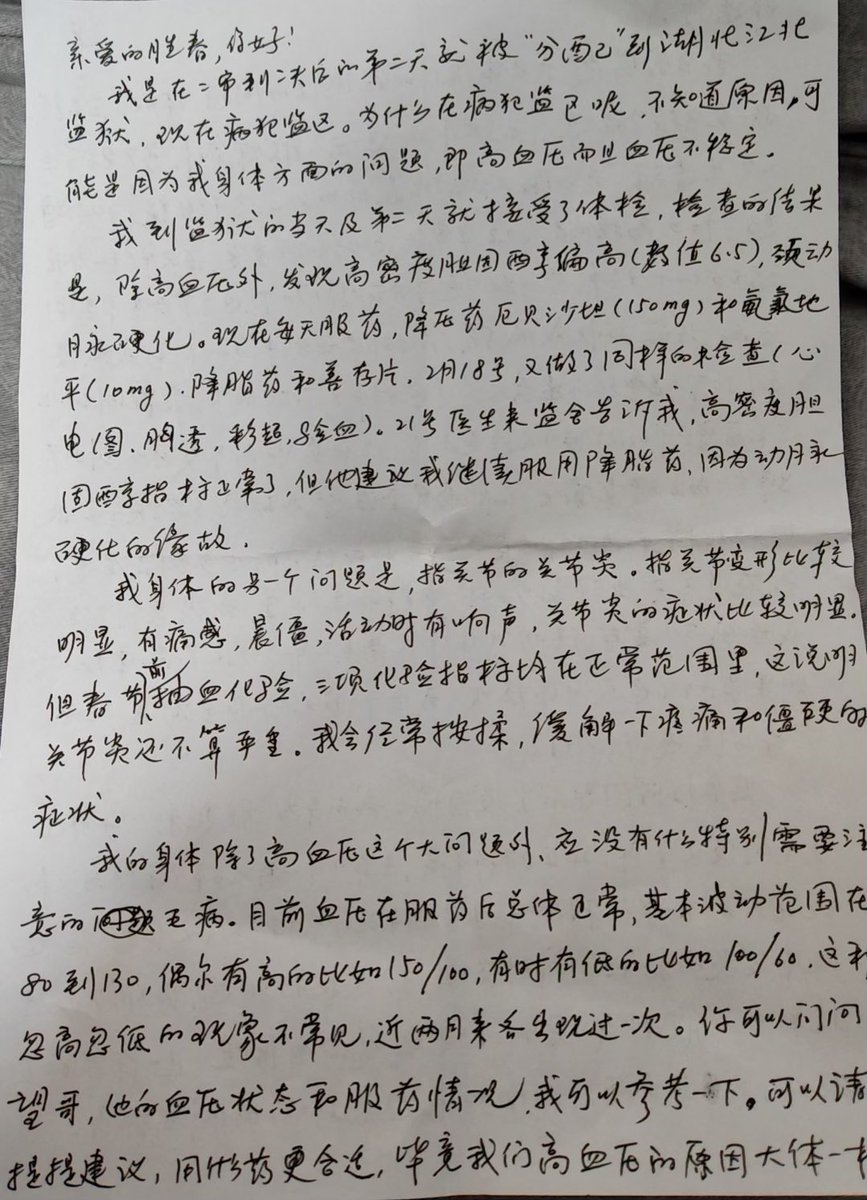 亲爱的胜春，你好！
我是在二审判决后的第二天就被“分配”到湖北江北
监狱，现在病犯监区。为什么在病犯监区呢，不知道原因，可
能是因为我身体方面的问题，即高血压而且血压不稳定。
我到监狱的当天及第二天就接受了体检，检查的结果
是，除高血压外，发现高密度胆固醇偏高（数值6.5），颈动
脉硬化。现在每天服药，降压药厄贝沙坦（150mg）和氨氯地
平（10mg）.降脂药和善存片。2月18号，又做了同样的检查（心
电图、胸透，彩超，验血）。21号医生来监舍告诉我，高密度胆
固醇指标正常了，但他建议我继续服用降脂药，因为动脉
硬化的缘故.
我身体的另一个问题是，指关节的关节炎。指关节变形比较
明显，有痛感，晨僵，活动时有响声，关节炎的症状比较明显。
但春节前抽血化验，三项化验指标均在正常范围里，这说明
关节炎还不算严重。我会经常按揉，缓解一下疼痛和僵硬的
症状。
我的身体除了高血压这个大问题外、应没有什么特别需要注
意的毛病。目前血压在服药后总体正常，基本波动范围在
80到130，偶尔有高的比如150/100，有时有低的比如100/60，这种
忽高忽低的现象不常见，近两月来各出现过一次。你可以问问
望哥，他的血压状态和服药情况，我可以参考一下。可以请
提提建议，用什么药更合适，毕竟我们高血压的原因大体一